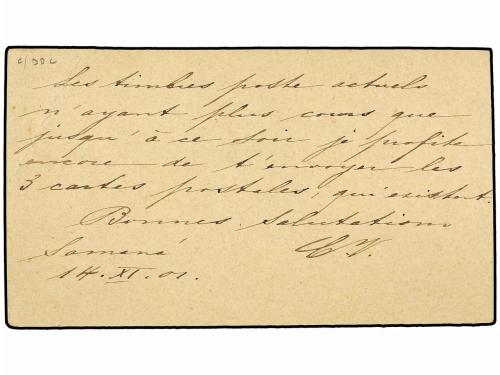 c/ 30 c
Les timbres poste actuels
n'ayant plus cours que
jusqu'à ce soir je profite
encore de t'envoyer les
3 cartes postales, qui existent.
Bonnes salutations
Samaná C.V.
14.XI.01.